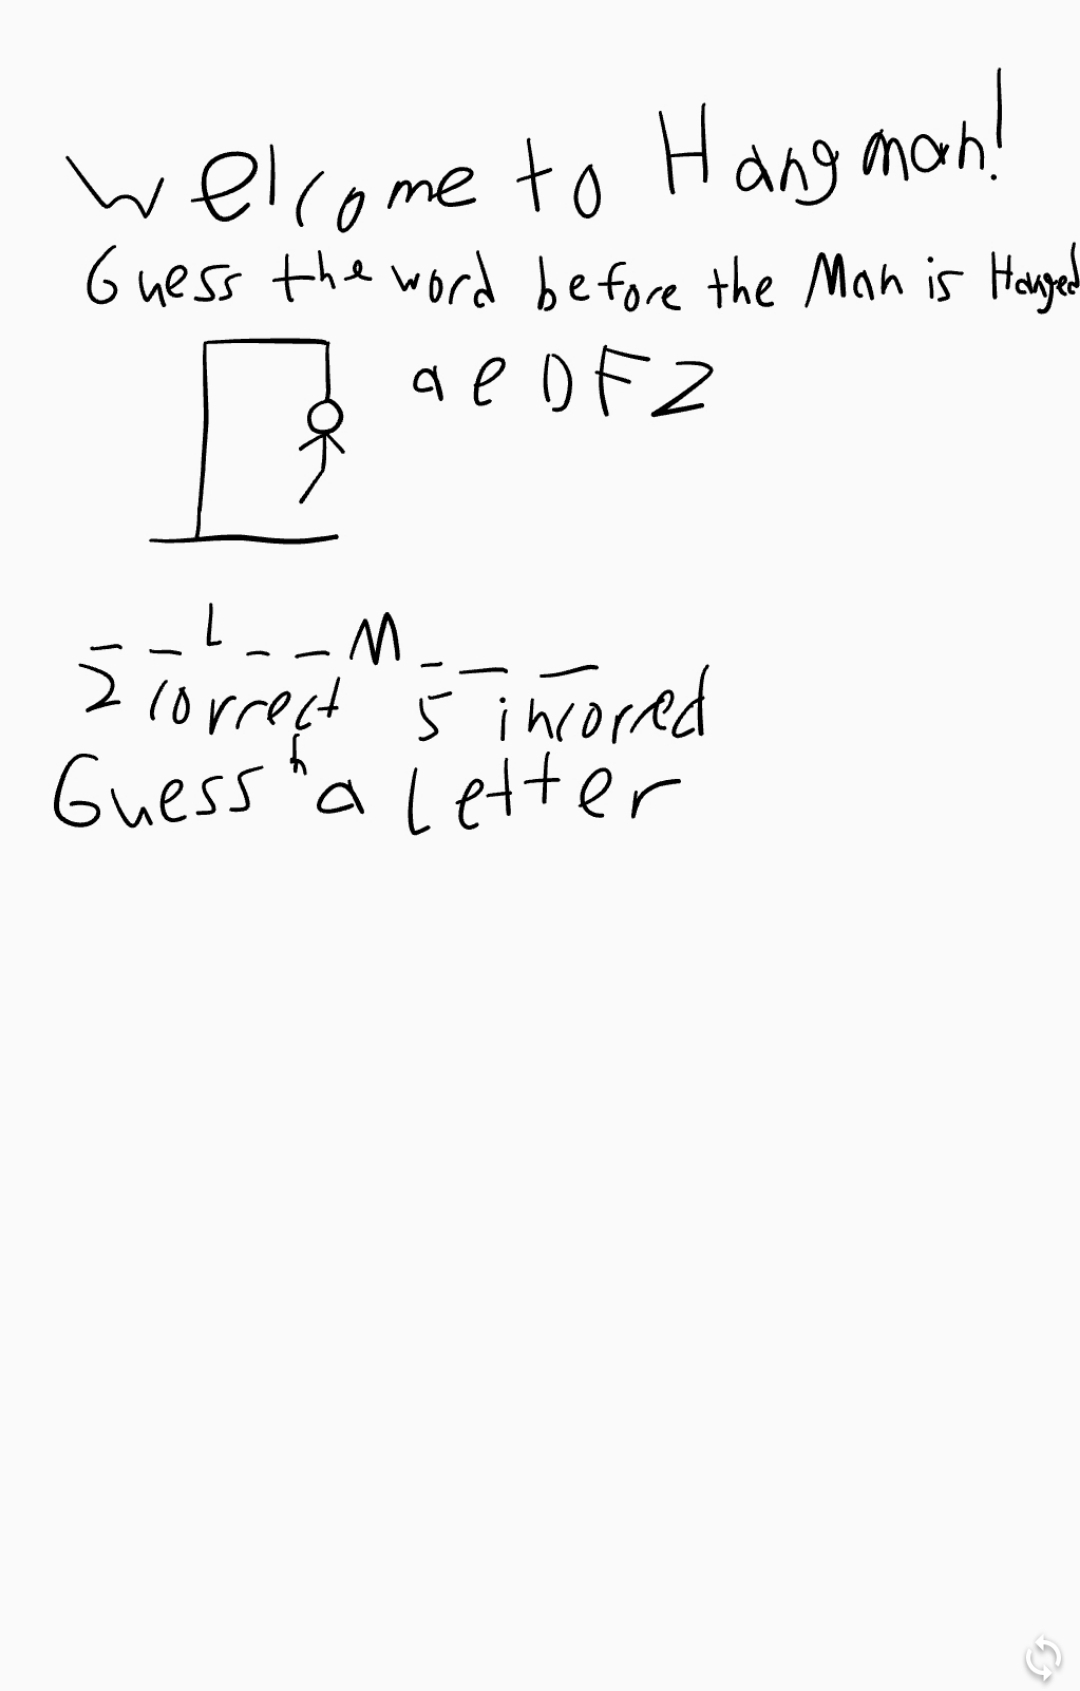 Welcome to Hangman!
Guess the word before the Man is Hanged
a e D F Z
_ _ L _ _ M _ _ _
2 correct 5 incorred
h
Guess a Letter